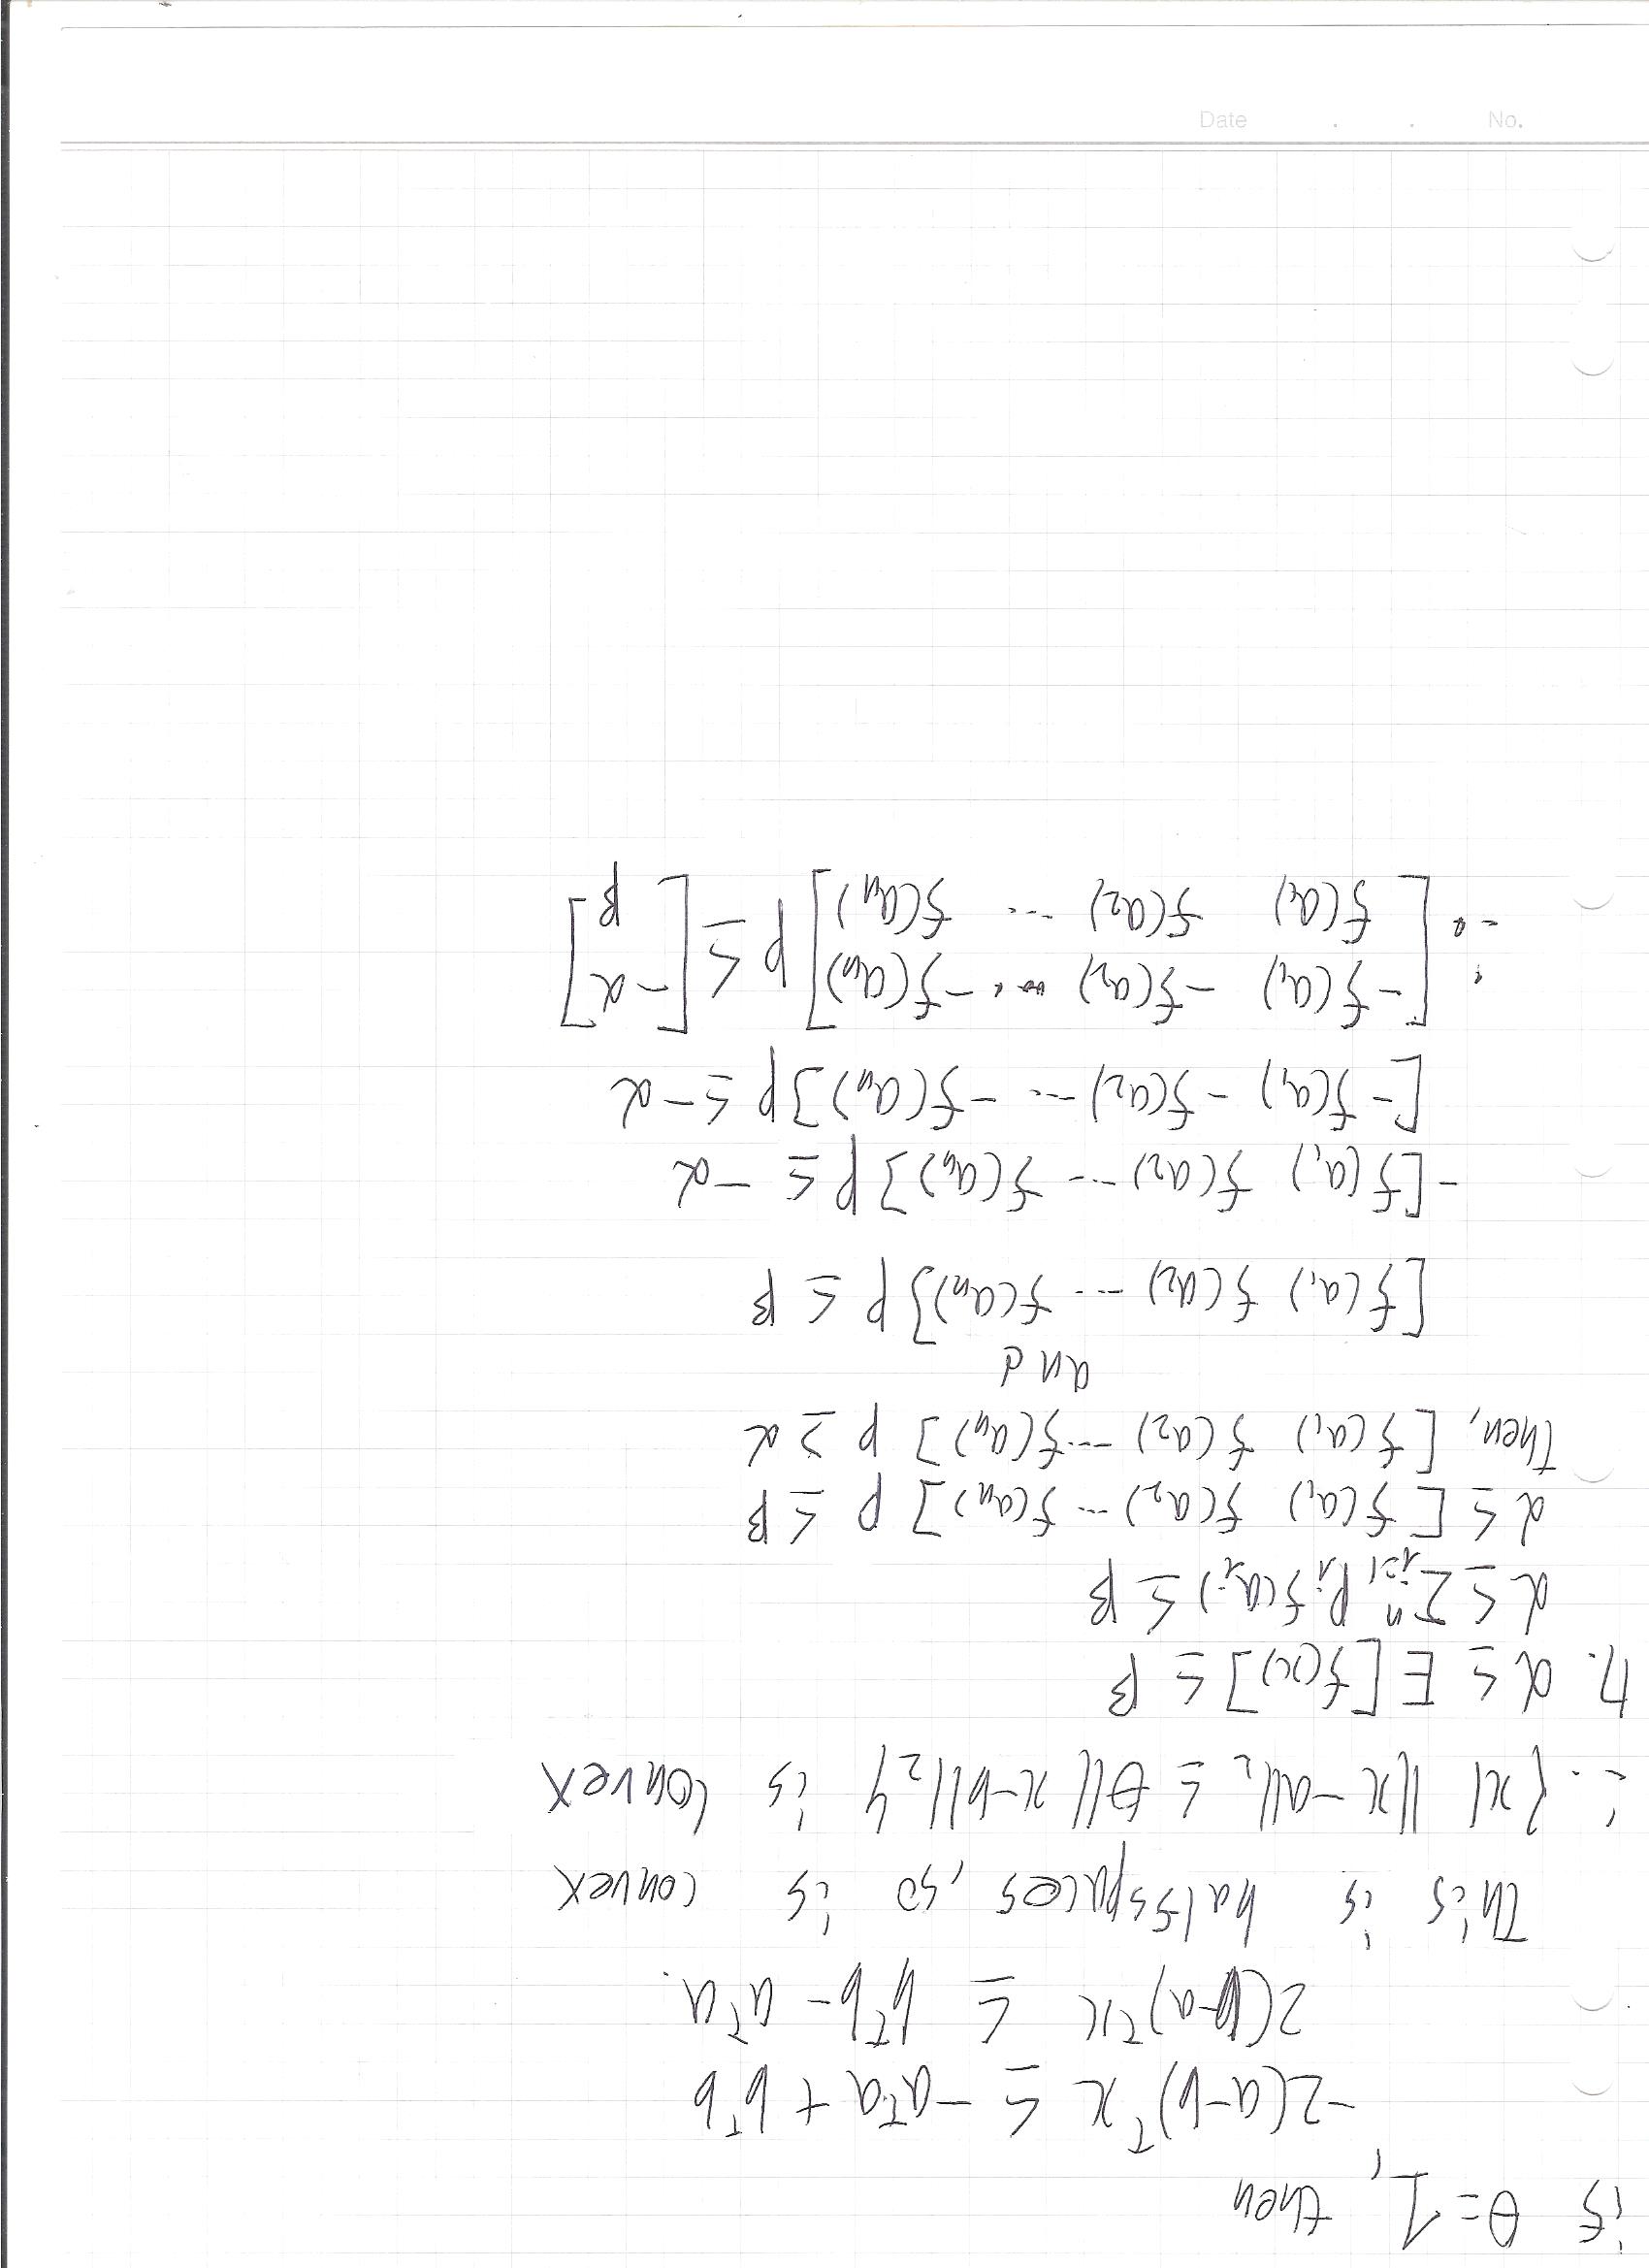 if θ=1, then
-2(a-b)ᵀx ≤ -aᵀa + bᵀb
2(b-a)ᵀx ≤ bᵀb - aᵀa.
This is halfspaces, so is convex
∴ {x| ||x-a||₂ ≤ θ||x-b||₂} is convex
7. α ≤ E[f(x)] ≤ β
α ≤ Σⁿᵢ₌₁ pᵢf(aᵢ) ≤ β
α ≤ [f(a₁) f(a₂) ... f(aₙ)] p ≤ β
Then, [f(a₁) f(a₂) ... f(aₙ)] p ≥ α
and
[f(a₁) f(a₂) ... f(aₙ)] p ≤ β
-[f(a₁) f(a₂) ... f(aₙ)] p ≤ -α
[-f(a₁) -f(a₂) ... -f(aₙ)] p ≤ -α
∴ [-f(a₁) -f(a₂) ... -f(aₙ)] p ≤ [-α]
[f(a₁) f(a₂) ... f(aₙ)] [β]
No. . . Date